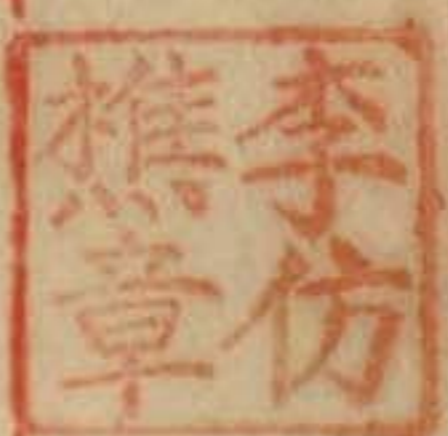 李仿
樵章